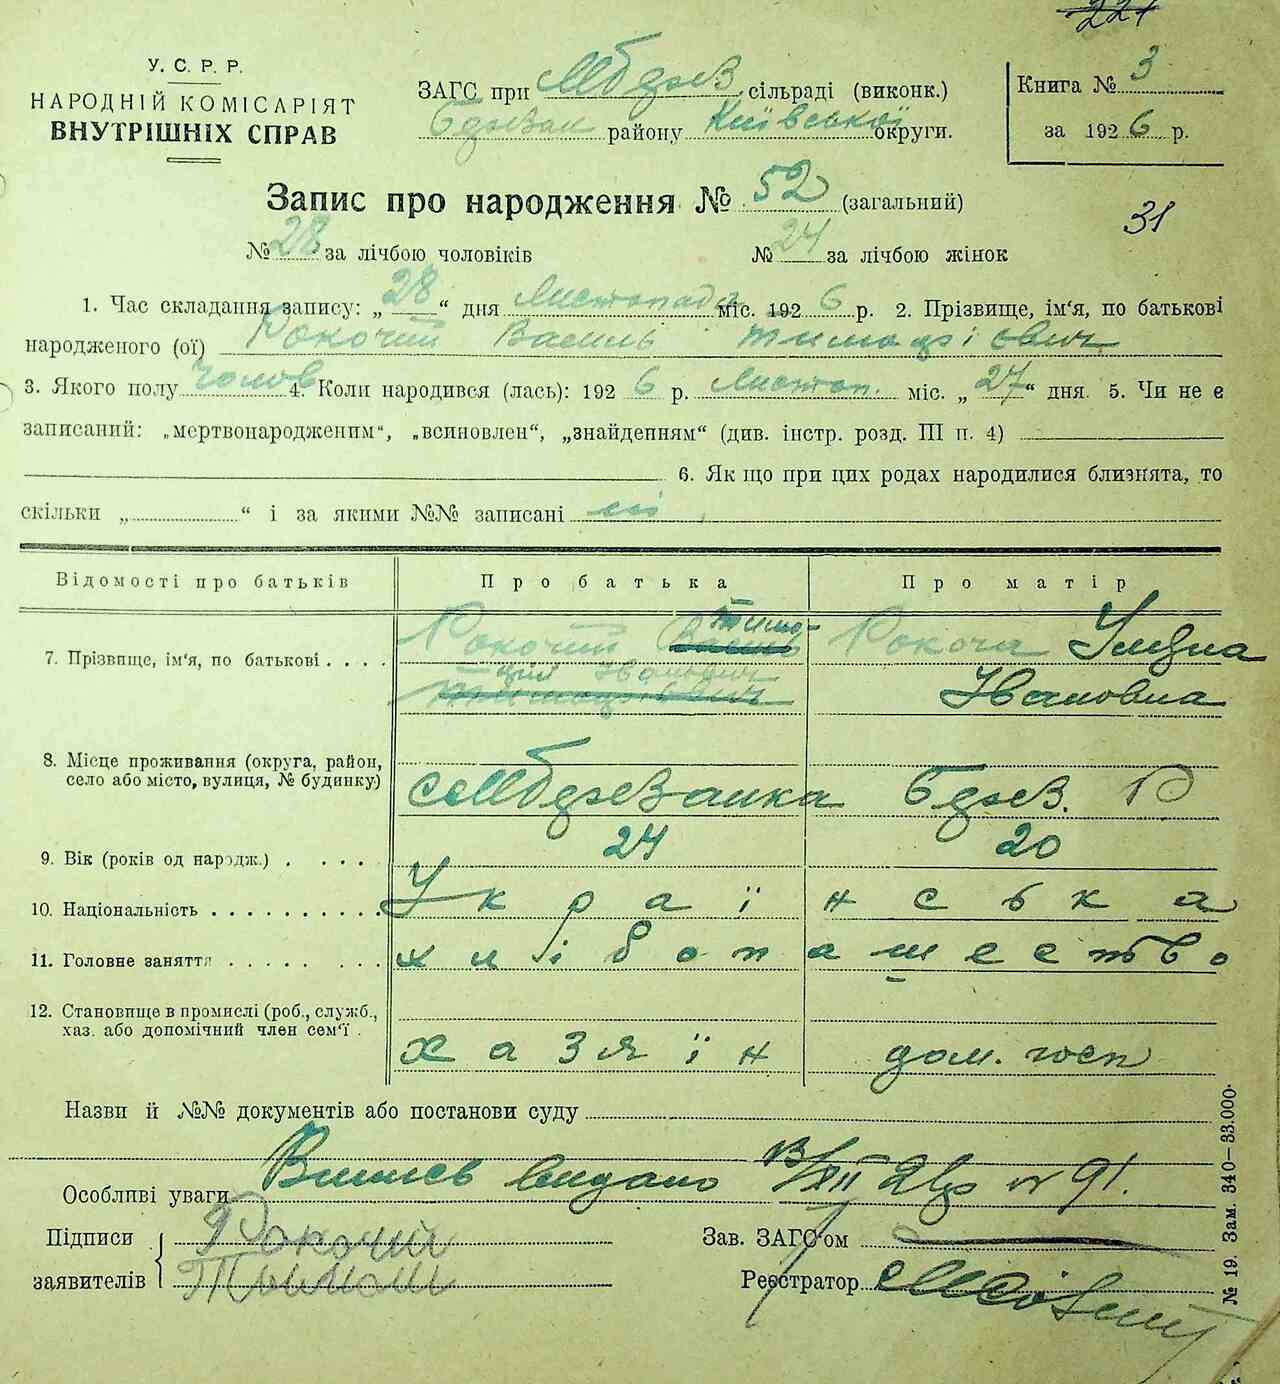 221
У. С. Р. Р.
НАРОДНІЙ КОМІСАРІЯТ
ВНУТРІШНІХ СПРАВ
ЗАГС при сільраді (виконк.)
району Київської округи.
Книга № 3
за 1926 р.
Запис про народження № 52 (загальний)
31
№ 28 за лічбою чоловіків № 24 за лічбою жінок
1. Час складання запису: „28“ дня Листопада міс. 1926 р. 2. Прізвище, ім‘я, по батькові
народженого (ої) Рокочий Василь Тимофіович
3. Якого полу чолов 4. Коли народився (лась): 1926 р. Листоп. міс. „27“ дня. 5. Чи не є
записаний: „мертвонародженим“, „всиновлен“, „знайденням“ (див. інстр. розд. III п. 4)
6. Як що при цих родах народилися близнята, то
скільки „ “ і за якими №№ записані ні
Відомості про батьків Про батька Про матір
7. Прізвище, ім‘я, по батькові Рокочий Василь Тимо- Рокоча Улияна
фій Іванович Івановна
Тимофіович
8. Місце проживання (округа, район,
село або місто, вулиця, № будинку)
9. Вік (років од народж.) 24 20
10. Національність Українська
11. Головне заняття хліборпашество
12. Становище в промислі (роб., служб.,
хаз. або допомічний член сем‘ї хазяїн дом. госп
Назви й №№ документів або постанови суду
Особливі уваги Випись видано 13/XII 26р № 91.
Підписи
заявителів
Рокочий
Тымош
Зав. ЗАГС‘ом
Реєстратор
№ 19. Зам. 340—33.000.